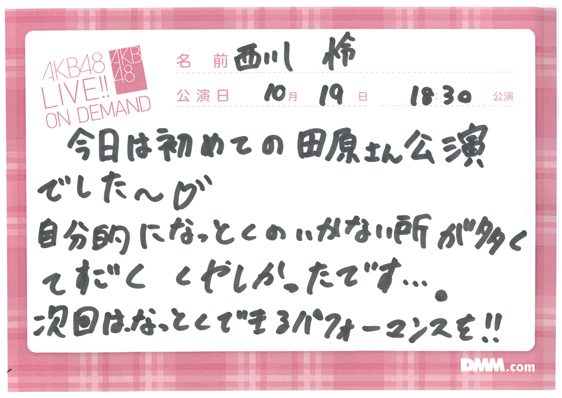 AKB48
LIVE!!
ON DEMAND
AKB
48
名前 西川 怜
公演日 10月 19日 18:30 公演
今日は初めての田原さん公演
でした〜♡
自分的になっとくのいかない所が多く
てすごく くやしかったです…。
次回は、なっとくできるパフォーマンスを!!
DMM.com